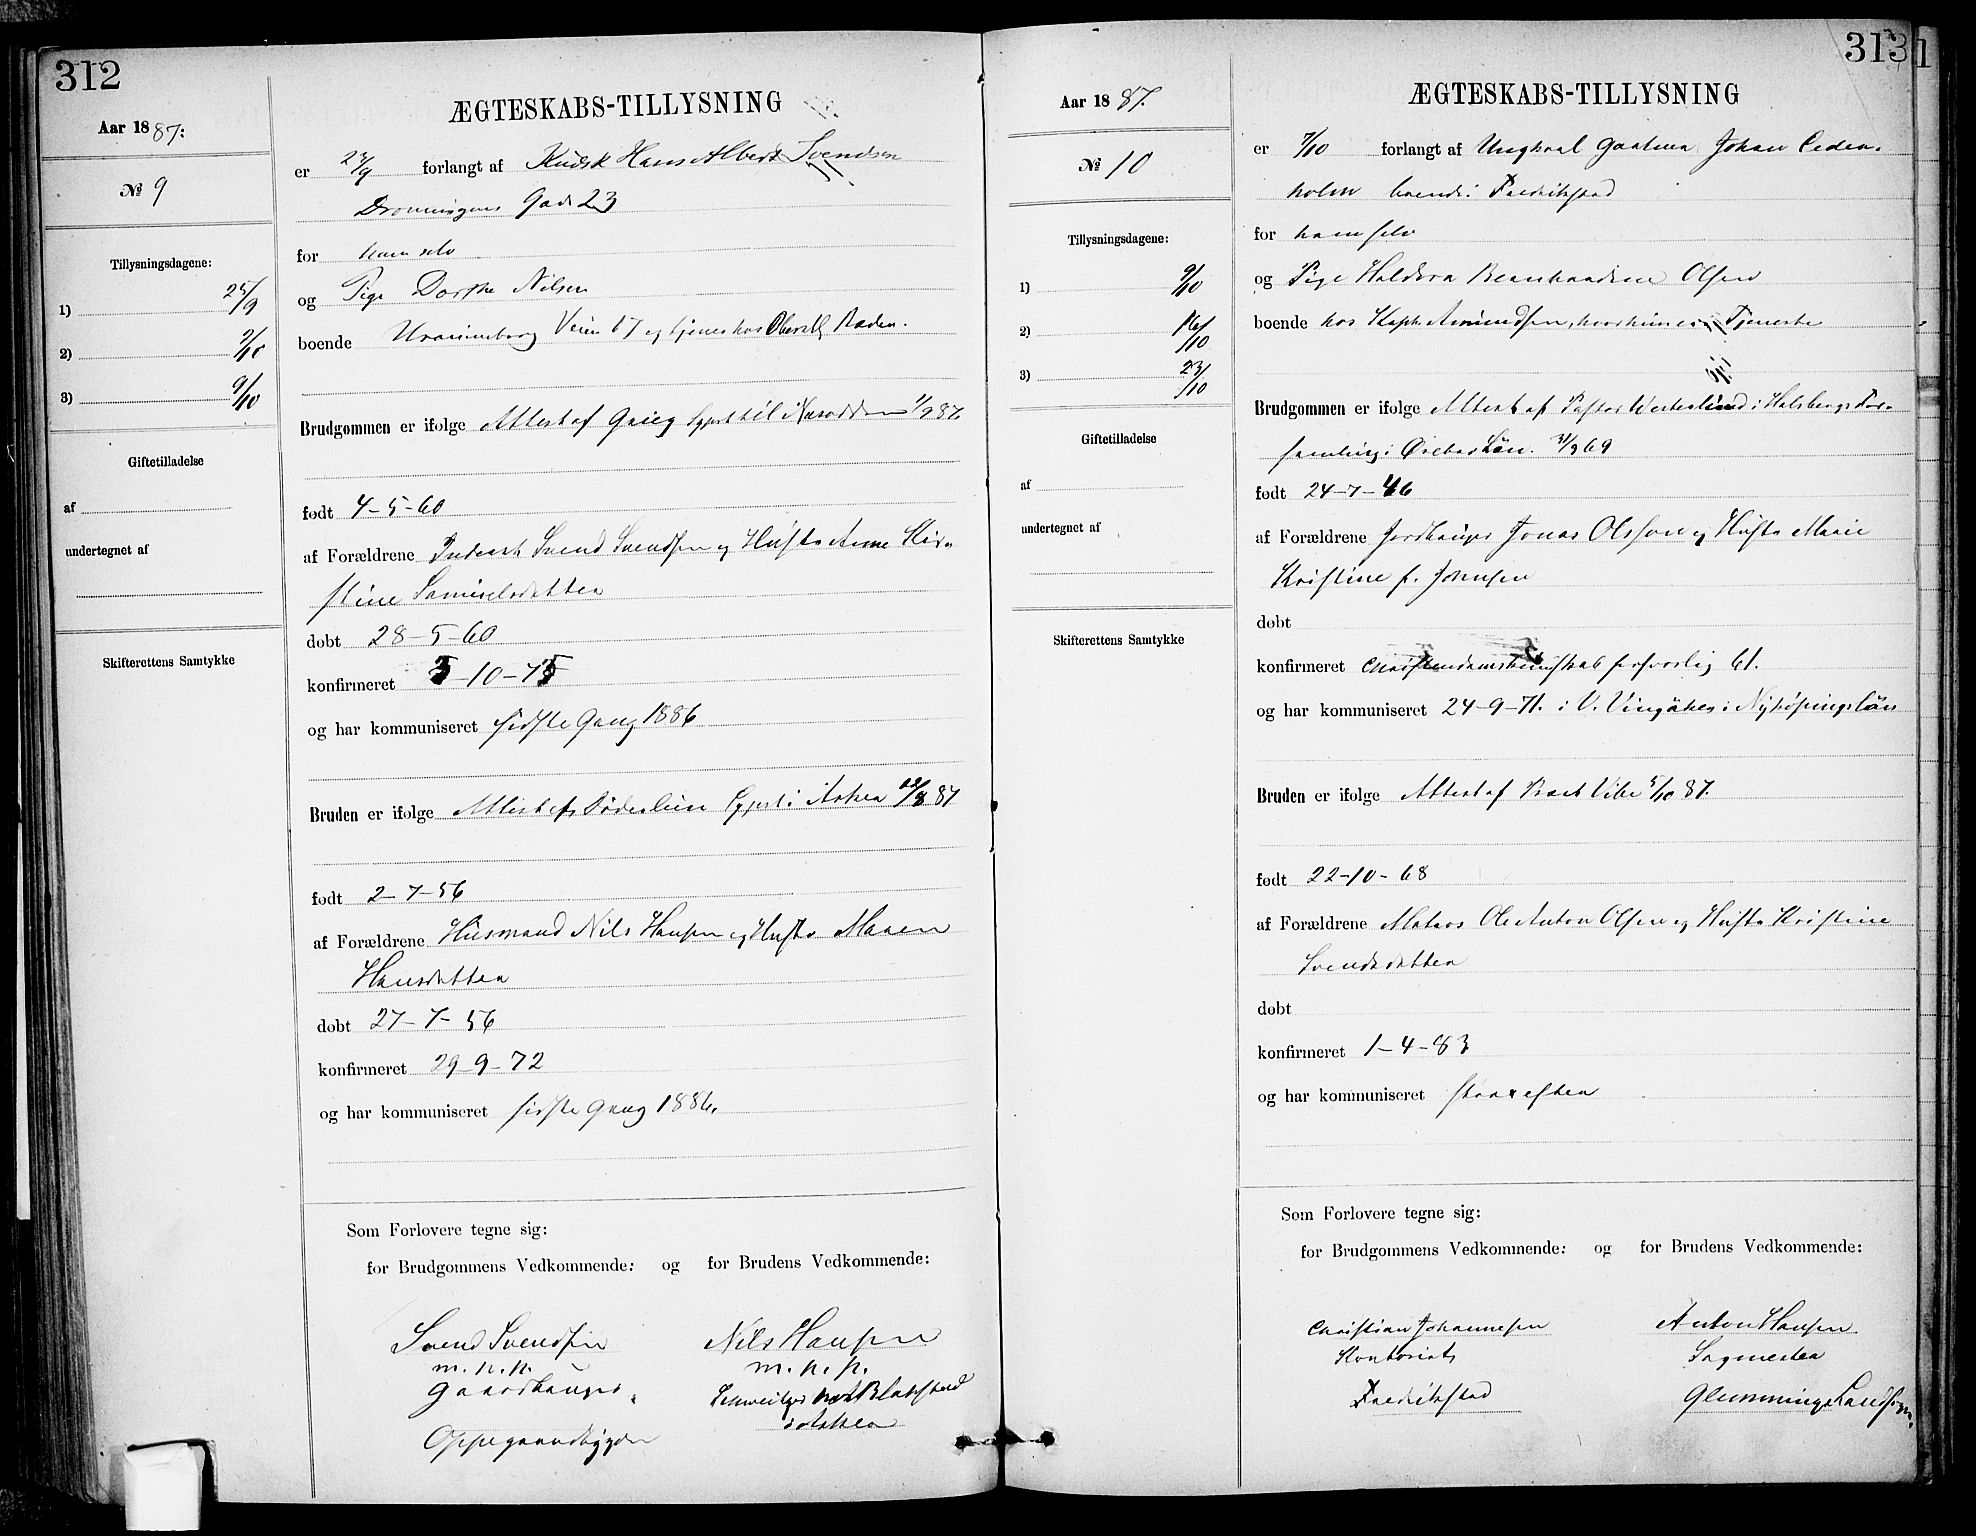 312
Aar 1887:
№ 9
Tillysningsdagene:
1) 25/9
2) 2/10
3) 9/10
Giftetilladelse
af
undertegnet af
Skifterettens Samtykke
ÆGTESKABS-TILLYSNING
er forlangt af Kudsk Hans Albert Svendsen
Dronningens Gade 23
for ham selv
og Pige Dorthe Nilsen
boende Uranienborg Veien 17 og tjener hos Oberstl.
Brudgommen er ifølge Attest af Grieg Sgprst til Næsodden 87
født 4-5-60
af Forældrene Svend Svendsen og Hustr Anne Kir-
stine Samuelsdatter
døbt 28-5-60
konfirmeret 3-10-75
og har kommuniseret sidste Gang 1886
Bruden er ifølge Attest af Sgprst i Asker 87
født 2-7-56
af Forældrene Husmand Nils Hansen og Hustr Maren
Hansdatter
døbt 27-7-56
konfirmeret 29-9-72
og har kommuniseret sidste Gang 1886.
Som Forlovere tegne sig:
for Brudgommens Vedkommende: og for Brudens Vedkommende:
Svend Svendsen Nils Hansen
m. p. p. m. p. p.
Gaardbruger
Oppegaardbygden i Asker
313
Aar 1887.
№ 10
Tillysningsdagene:
1) 9/10
2) 16/10
3) 23/10
Giftetilladelse
af
undertegnet af
Skifterettens Samtykke
ÆGTESKABS-TILLYSNING
er 7/10 forlangt af Ungkarl Johan Ceder-
holm boende i Fredrikstad
for ham selv
og Pige Haldora Bernhardine Olsen
boende hos Kapt Amundsen, hvor hun er i Tjeneste
Brudgommen er ifølge Attest af Pastor Westerlund i Halsbergs For-
samling i Ørebro Län. 69
født 24-7-46
af Forældrene Jordbruger Jonas Olsson og Hustr Marie
Kristine f. Johnsen
døbt
konfirmeret Christendomskundskab forsvarlig 61.
og har kommuniseret 24-9-71. i V. Vingåker i Nyköpings Län
Bruden er ifølge Attest af Vibe 5/10 87.
født 22-10-68
af Forældrene Matros Ole Anton Olsen og Hustr Kristine
Svendsdatter
døbt
konfirmeret 1-4-83
og har kommuniseret strax efter
Som Forlovere tegne sig:
for Brudgommens Vedkommende: og for Brudens Vedkommende:
Christian Johannesen Anton Hansen
Kontorist Sagmester
Fredrikstad Glemminge Landsogn.